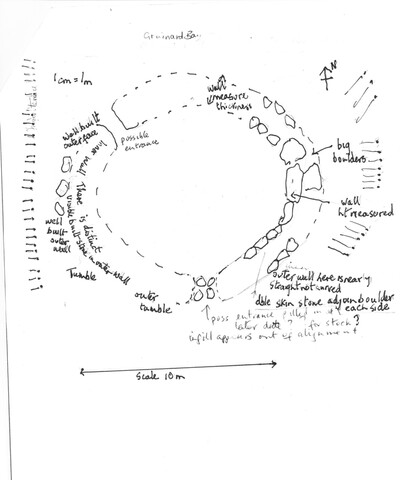 Gruinard Bay
1cm = 1m
N
wall
measure
thickness
Wall built
outer face
possible
entrance
big
boulders
wall
ht measured
There is distinct
visible built stone in outer wall
well
built
outer
wall
Tumble
outer
tumble
outer wall here is nearly
straight not curved
dble skin stone adjoin boulder
each side
poss entrance filled in at
later date? for stock?
infill appears out of alignment
Scale 10m